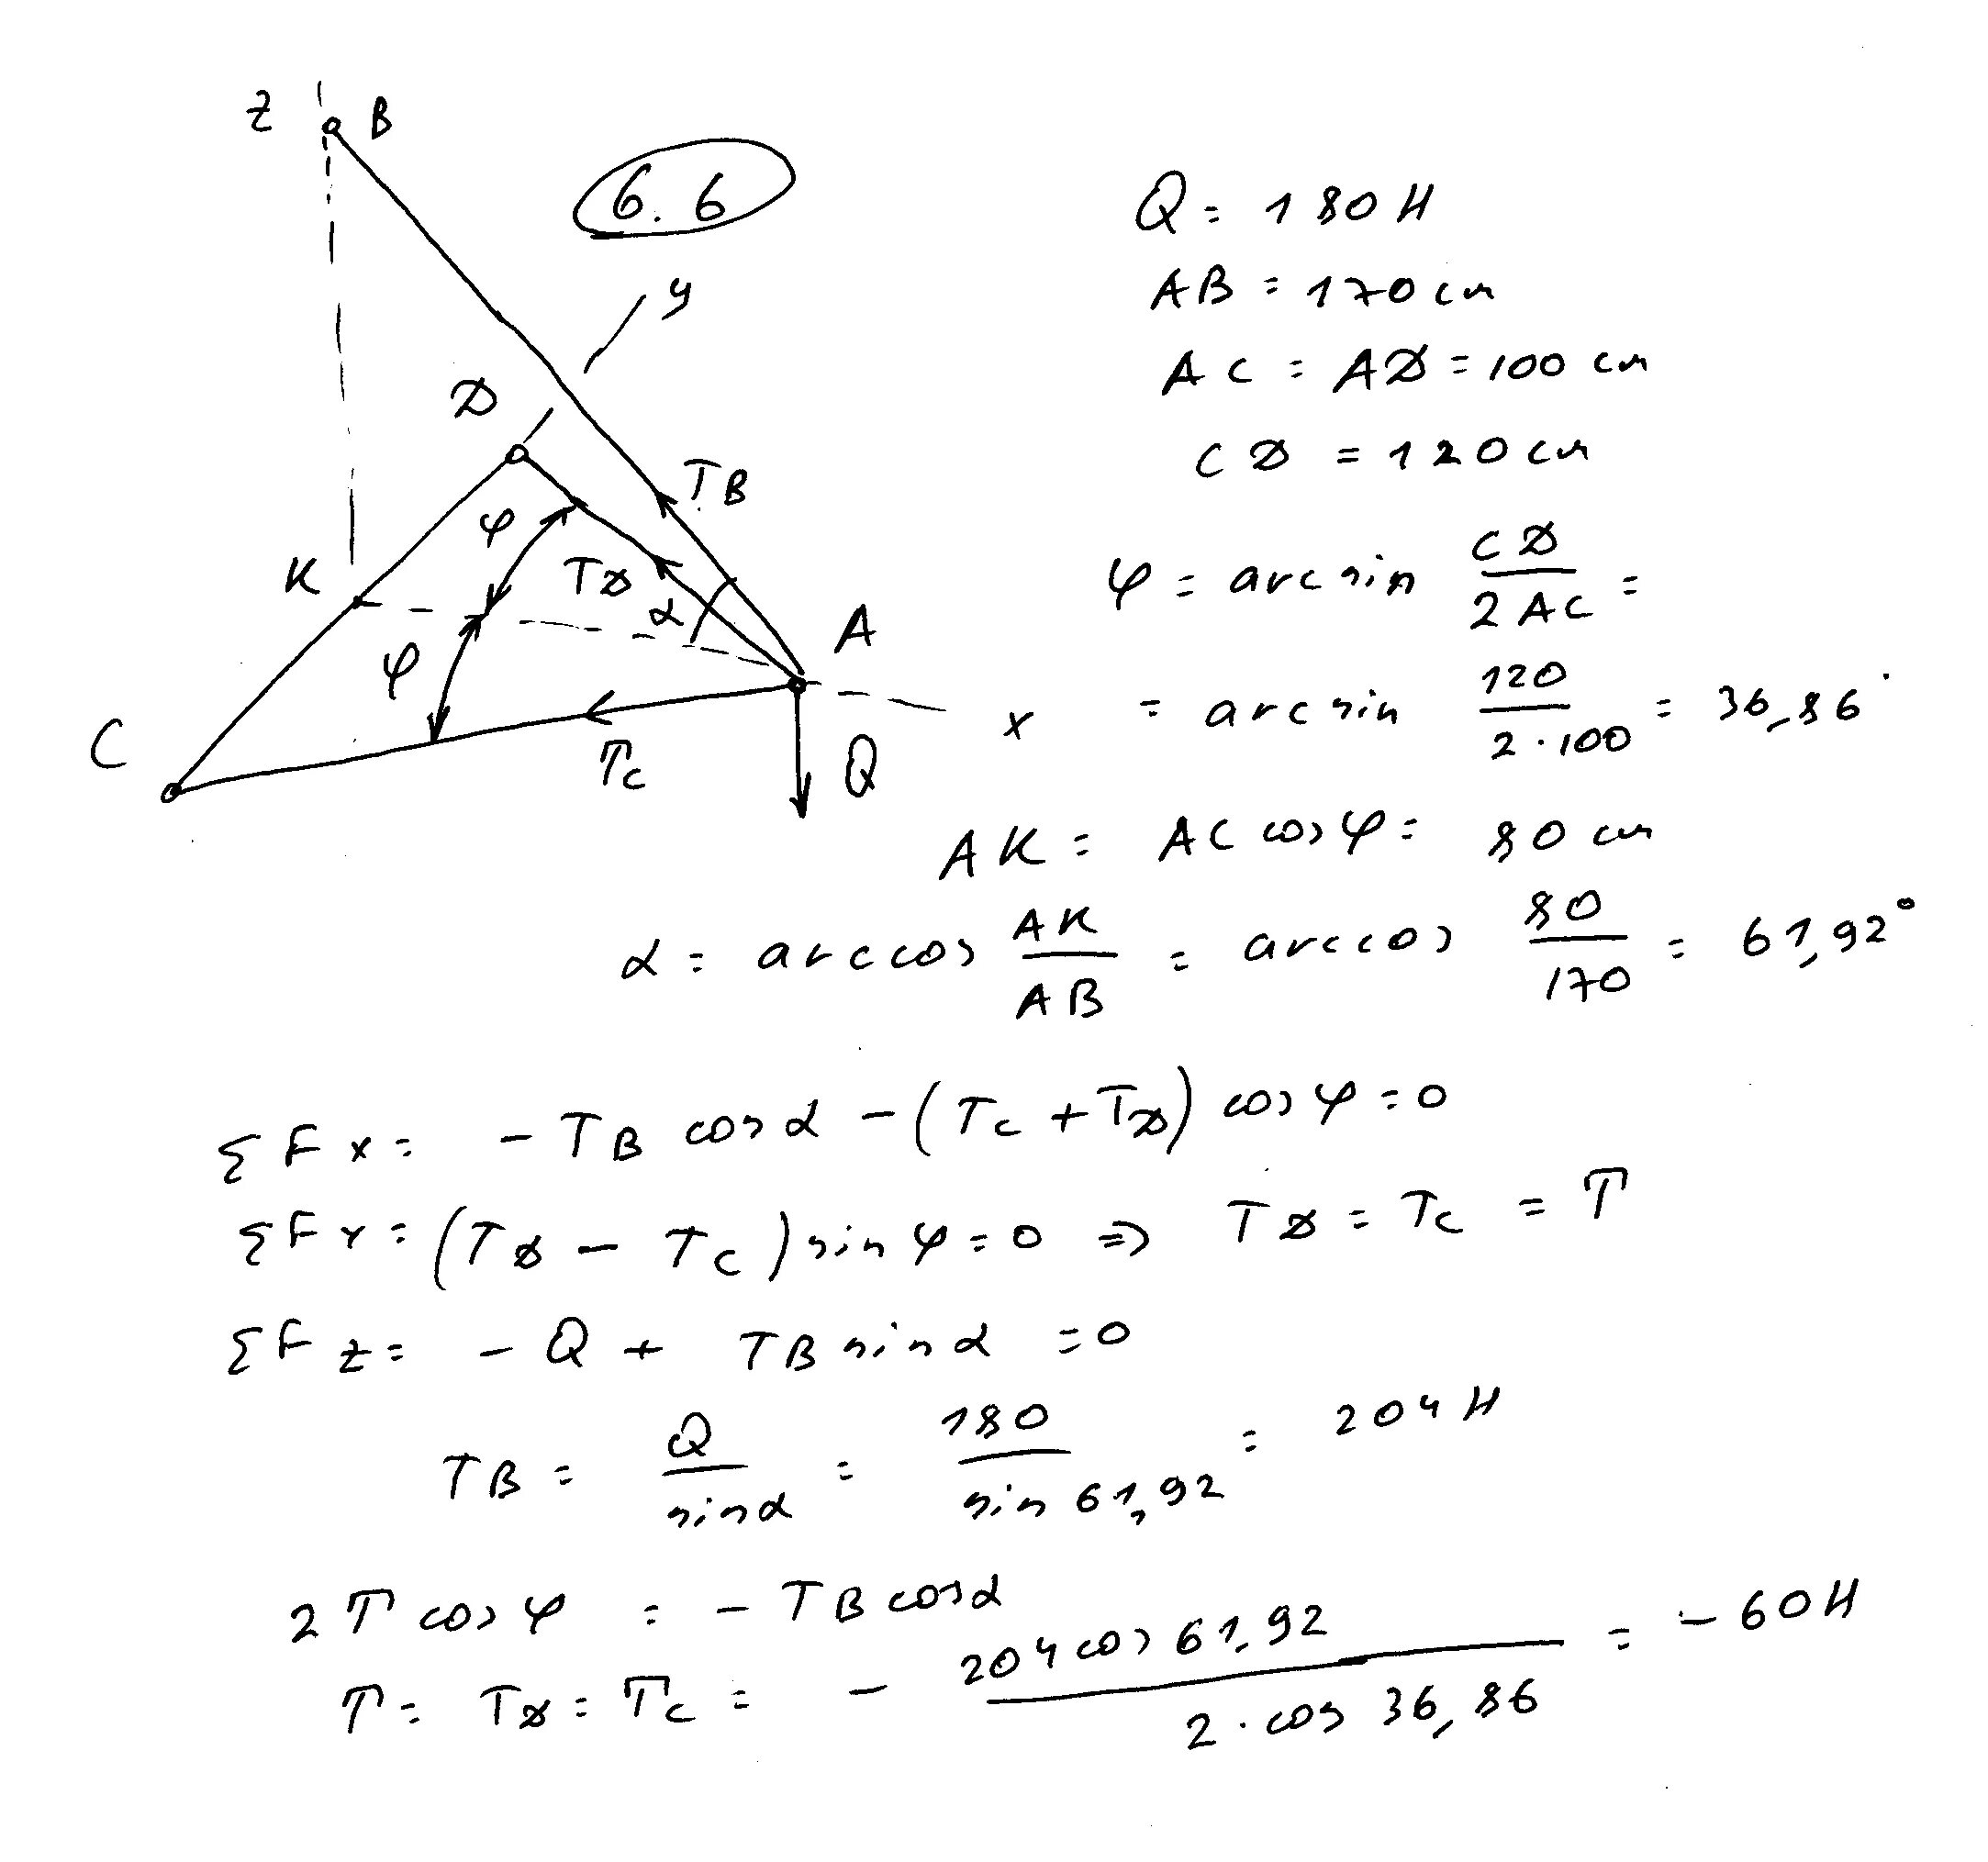 z B
6.6
Q = 180 H
AB = 170 см
y
D
AC = AD = 100 см
TB
CD = 120 см
φ
K TD α A
φ = arcsin CD / 2AC =
φ
C TC Q x
= arcsin 120 / 2·100 = 36,86°
AK = AC cos φ = 80 см
α = arccos AK / AB = arccos 80 / 170 = 61,92°
ΣFx = - TB cos α - (TC + TD) cos φ = 0
ΣFY = (TD - TC) sin φ = 0 => TD = TC = T
ΣFz = - Q + TB sin α = 0
TB = Q / sin α = 180 / sin 61,92 = 204 H
2 T cos φ = - TB cos α
T = TD = TC = - 204 cos 61,92 / 2·cos 36,86 = - 60 H